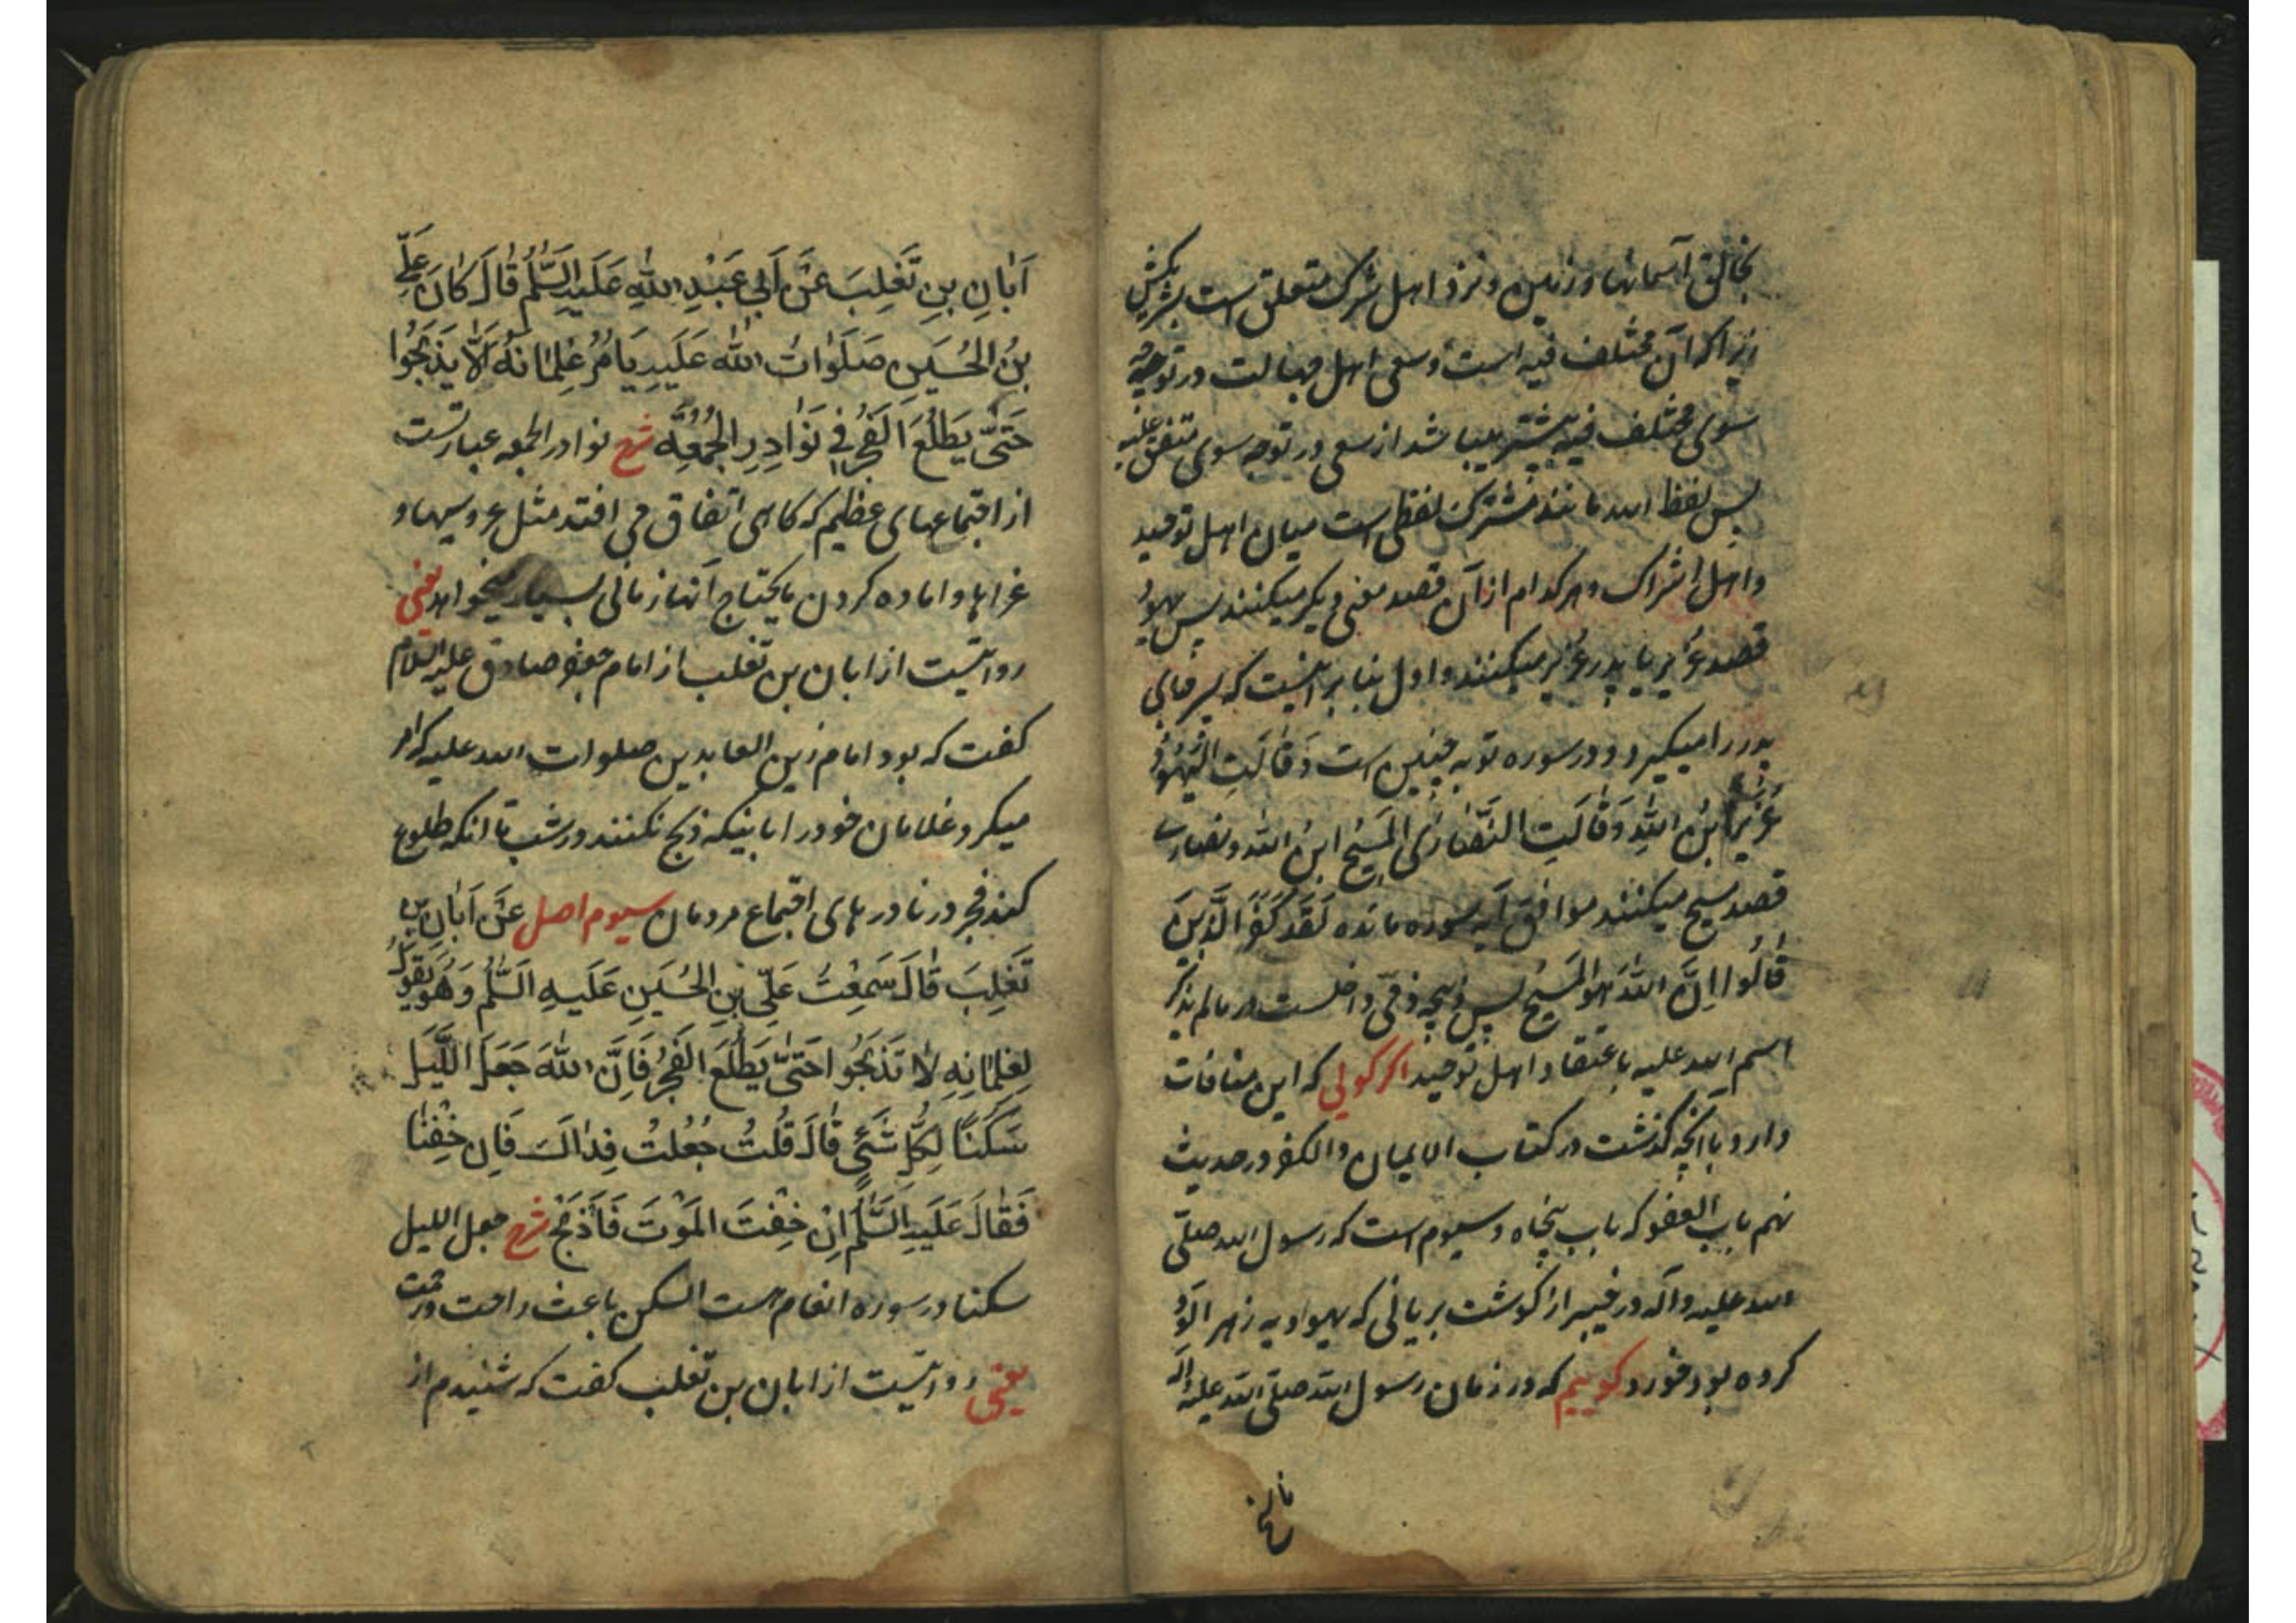 بخالق آسمانها و زمین و نزد اهل شرک متعلق است بشریکش
زیرا که آن مختلف فیه است و سعی اهل جهالت در توجه
سوی مختلف فیه بیشتر میباشد از سعی در توجه سوی متفق علیه
پس لفظ الله مانند مشترک لفظی است میان اهل توحید
و اهل اشراک و هر کدام از آن قصد معنی دیگر میکنند پس یهود
قصد عزیر یا پدر عزیر میکنند و اول بنا بر اینست که پسر جای
پدر را میگیرد و در سوره توبه چنین است وَقَالَتِ الْیَهُودُ
عُزَیْرٌ ابْنُ اللهِ وَقَالَتِ النَّصَارَی الْمَسِیحُ ابْنُ الله و نصاری
قصد مسیح میکنند موافق آیه سوره مائده لَقَدْ کَفَرَ الَّذِینَ
قَالُوا اِنَّ اللهَ هُوَ الْمَسِیحُ پس ذبیحه ذمّی داخلست در مالم یذکر
اسم الله علیه باعتقاد اهل توحید اگر گوئی که این منافات
دارد با انچه گذشت در کتاب الایمان والکفر در حدیث
نهم باب العفو که باب پنجاه و سیوم است که رسول الله صلّی
الله علیه وآله در خیبر از گوشت بریانی که یهودیه زهر آلود
کرده بود خورد گوییم که در زمان رسول الله صلّی الله علیه وآله
اَبَانِ بنِ تَغلِبَ عَنْ اَبی عَبْدِ اللهِ عَلَیْهِ السَّلٰمُ قَالَ کَانَ عَلِیُّ
بنُ الحُسَینِ صَلَوَاتُ الله عَلَیهِ یَامُرُ غِلمَانَهُ اَلَّا یَذبَحُوا
حَتّٰی یَطلُعَ الفَجرُ فِی نَوَادِرِ الجُمُعَةِ شرح نوادر الجمعه عبارتست
از اجتماعهای عظیم که گاهی اتفاق می افتد مثل عروسیها و
عزاها و اماده کردن مایحتاج آنها زمانی بسیار میخواهد یعنی
روایتست از ابان بن تغلب از امام جعفر صادق علیه السلام
گفت که بود امام زین العابدین صلوات الله علیه که امر
میکرد غلامان خود را باینکه ذبح نکنند در شب تا انکه طلوع
کند فجر در نادرهای اجتماع مردمان سیوم اصل عَنْ اَبَانِ بنِ
تَغلِبَ قَالَ سَمِعْتُ عَلِیَّ بنَ الحُسَینِ عَلَیهِ السَّلٰمُ وَهُوَ یَقُولُ
لِغِلمَانِهِ لَا تَذبَحُوا حَتّٰی یَطلُعَ الفَجرُ فَاِنَّ اللهَ جَعَلَ اللَّیلَ
سَکَنًا لِکُلِّ شَیْءٍ قَالَ قُلتُ جُعِلتُ فِدَاکَ فَاِن خِفْنَا
فَقَالَ عَلَیهِ السَّلٰمُ اِنْ خِفتَ المَوْتَ فَاذْبَحْ شرح جعل اللیل
سکنا در سوره انعام است السکن باعث راحت و رحمت
یعنی روایتست از ابان بن تغلب گفت که شنیدم از